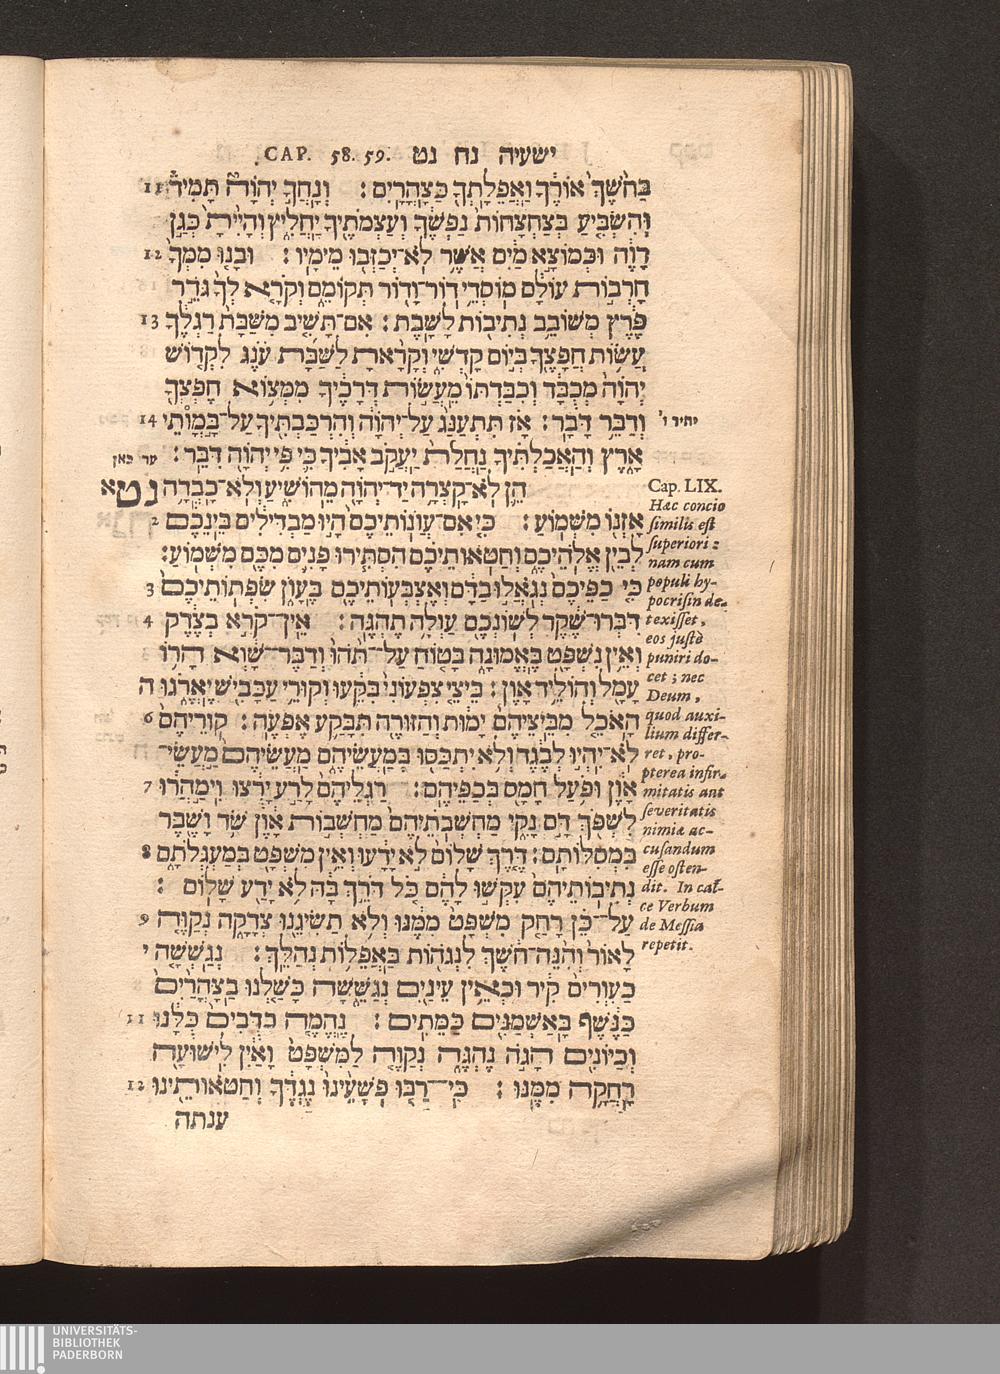 ישעיה נח נט CAP. 58. 59.
בַּחֹשֶׁךְ אוֹרֶךָ וַאֲפֵלָתְךָ כַּצָּהֳרָיִם: וְנָחֲךָ יְהוָה תָּמִיד 11
וְהִשְׂבִּיעַ בְּצַחְצָחוֹת נַפְשֶׁךָ וְעַצְמֹתֶיךָ יַחֲלִיץ וְהָיִיתָ כְּגַן
רָוֶה וּכְמוֹצָא מַיִם אֲשֶׁר לֹא־יְכַזְּבוּ מֵימָיו: וּבָנוּ מִמְּךָ 12
חָרְבוֹת עוֹלָם מוֹסְדֵי דוֹר־וָדוֹר תְּקוֹמֵם וְקֹרָא לְךָ גֹּדֵר
פֶּרֶץ מְשׁוֹבֵב נְתִיבוֹת לָשָׁבֶת: אִם־תָּשִׁיב מִשַּׁבָּת רַגְלֶךָ 13
עֲשׂוֹת חֲפָצֶךָ בְּיוֹם קָדְשִׁי וְקָרָאתָ לַשַּׁבָּת עֹנֶג לִקְדוֹשׁ
יְהוָה מְכֻבָּד וְכִבַּדְתּוֹ מֵעֲשׂוֹת דְּרָכֶיךָ מִמְּצוֹא חֶפְצְךָ
וְדַבֵּר דָּבָר: אָז תִּתְעַנַּג עַל־יְהוָה וְהִרְכַּבְתִּיךָ עַל־בָּמֳותֵי 14
יתיר ו'
אָרֶץ וְהַאֲכַלְתִּיךָ נַחֲלַת יַעֲקֹב אָבִיךָ כִּי פִּי יְהוָה דִּבֵּר:
עד כאן
הֵן לֹא־קָצְרָה יַד־יְהוָה מֵהוֹשִׁיעַ וְלֹא־כָבְדָה נט א
אָזְנוֹ מִשְּׁמוֹעַ: כִּי אִם־עֲוֹנוֹתֵיכֶם הָיוּ מַבְדִּילִים בֵּינֵכֶם 2
לְבֵין אֱלֹהֵיכֶם וְחַטֹּאותֵיכֶם הִסְתִּירוּ פָנִים מִכֶּם מִשְּׁמוֹעַ:
כִּי כַפֵּיכֶם נְגֹאֲלוּ בַדָּם וְאֶצְבְּעוֹתֵיכֶם בֶּעָוֹן שִׂפְתוֹתֵיכֶם 3
דִּבְּרוּ־שֶׁקֶר לְשׁוֹנְכֶם עַוְלָה תֶהְגֶּה: אֵין־קֹרֵא בְצֶדֶק 4
וְאֵין נִשְׁפָּט בֶּאֱמוּנָה בָּטוֹחַ עַל־תֹּהוּ וְדַבֶּר־שָׁוְא הָרוֹ
עָמָל וְהוֹלֵיד אָוֶן: בֵּיצֵי צִפְעוֹנִי בִּקֵּעוּ וְקוּרֵי עַכָּבִישׁ יֶאֱרֹגוּ ה
הָאֹכֵל מִבֵּיצֵיהֶם יָמוּת וְהַזּוּרֶה תִּבָּקַע אֶפְעֶה: קוּרֵיהֶם 6
לֹא־יִהְיוּ לְבֶגֶד וְלֹא יִתְכַּסּוּ בְּמַעֲשֵׂיהֶם מַעֲשֵׂיהֶם מַעֲשֵׂי־
אָוֶן וּפֹעַל חָמָס בְּכַפֵּיהֶם: רַגְלֵיהֶם לָרַע יָרֻצוּ וִימַהֲרוּ 7
לִשְׁפֹּךְ דָּם נָקִי מַחְשְׁבֹתֵיהֶם מַחְשְׁבוֹת אָוֶן שֹׁד וָשֶׁבֶר
בִּמְסִלּוֹתָם: דֶּרֶךְ שָׁלוֹם לֹא יָדָעוּ וְאֵין מִשְׁפָּט בְּמַעְגְּלוֹתָם 8
נְתִיבוֹתֵיהֶם עִקְּשׁוּ לָהֶם כֹּל דֹּרֵךְ בָּהּ לֹא יָדַע שָׁלוֹם:
עַל־כֵּן רָחַק מִשְׁפָּט מִמֶּנּוּ וְלֹא תַשִּׂיגֵנוּ צְדָקָה נְקַוֶּה 9
לָאוֹר וְהִנֵּה־חֹשֶׁךְ לִנְגֹהוֹת בָּאֲפֵלוֹת נְהַלֵּךְ: נְגַשְׁשָׁה י
כַעִוְרִים קִיר וּכְאֵין עֵינַיִם נְגַשֵּׁשָׁה כָּשַׁלְנוּ בַצָּהֳרַיִם
כַּנֶּשֶׁף בָּאַשְׁמַנִּים כַּמֵּתִים: נֶהֱמֶה כַדֻּבִּים כֻּלָּנוּ 11
וְכַיּוֹנִים הָגֹה נֶהְגֶּה נְקַוֶּה לַמִּשְׁפָּט וָאַיִן לִישׁוּעָה
רָחֲקָה מִמֶּנּוּ: כִּי־רַבּוּ פְשָׁעֵינוּ נֶגְדֶּךָ וְחַטֹּאותֵינוּ 12
ענתה
Cap. LIX.
Hæc concio
similis est
superiori:
nam cum
populi hy-
pocrisin de-
texisset,
eos justè
puniri do-
cet; nec
Deum,
quod auxi-
lium differ-
ret, pro-
pterea infir-
mitatis aut
severitatis
nimiæ ac-
cusandum
esse osten-
dit. In cal-
ce Verbum
de Messia
repetit.
UNIVERSITÄTS-
BIBLIOTHEK
PADERBORN